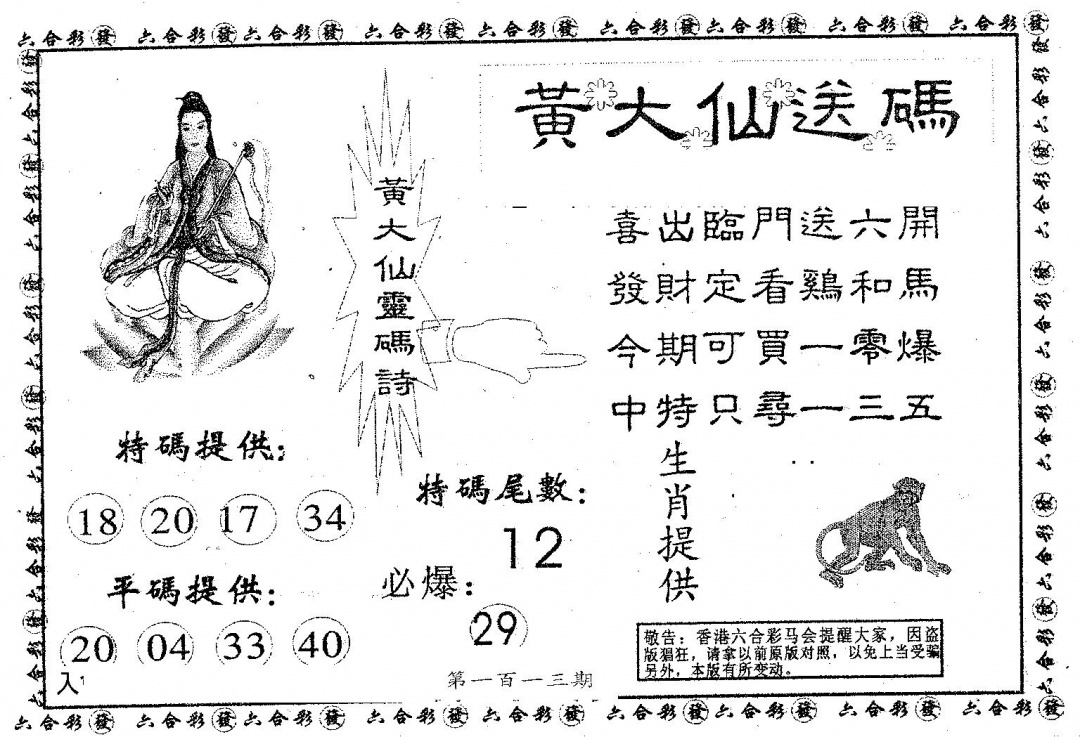 六合彩發 六合彩發六合彩發 六合彩發 六合彩發 六合彩發六合彩發 六合彩發 六合彩發
黃大仙送碼
黃大仙靈碼詩
喜出臨門送六開
發財定看鷄和馬
今期可買一零爆
中特只尋一三五
特碼提供：
18 20 17 34
平碼提供：
20 04 33 40
入1
特碼尾數：
12
必爆：
29
第一百一三期
生肖提供
敬告：香港六合彩马会提醒大家，因盗
版猖狂，请拿以前原版对照，以免上当受骗
另外，本版有所变动。
六合彩發 六合彩發六合彩發 六合彩發 六合彩發 六合彩發六合彩發 六合彩發 六合彩發